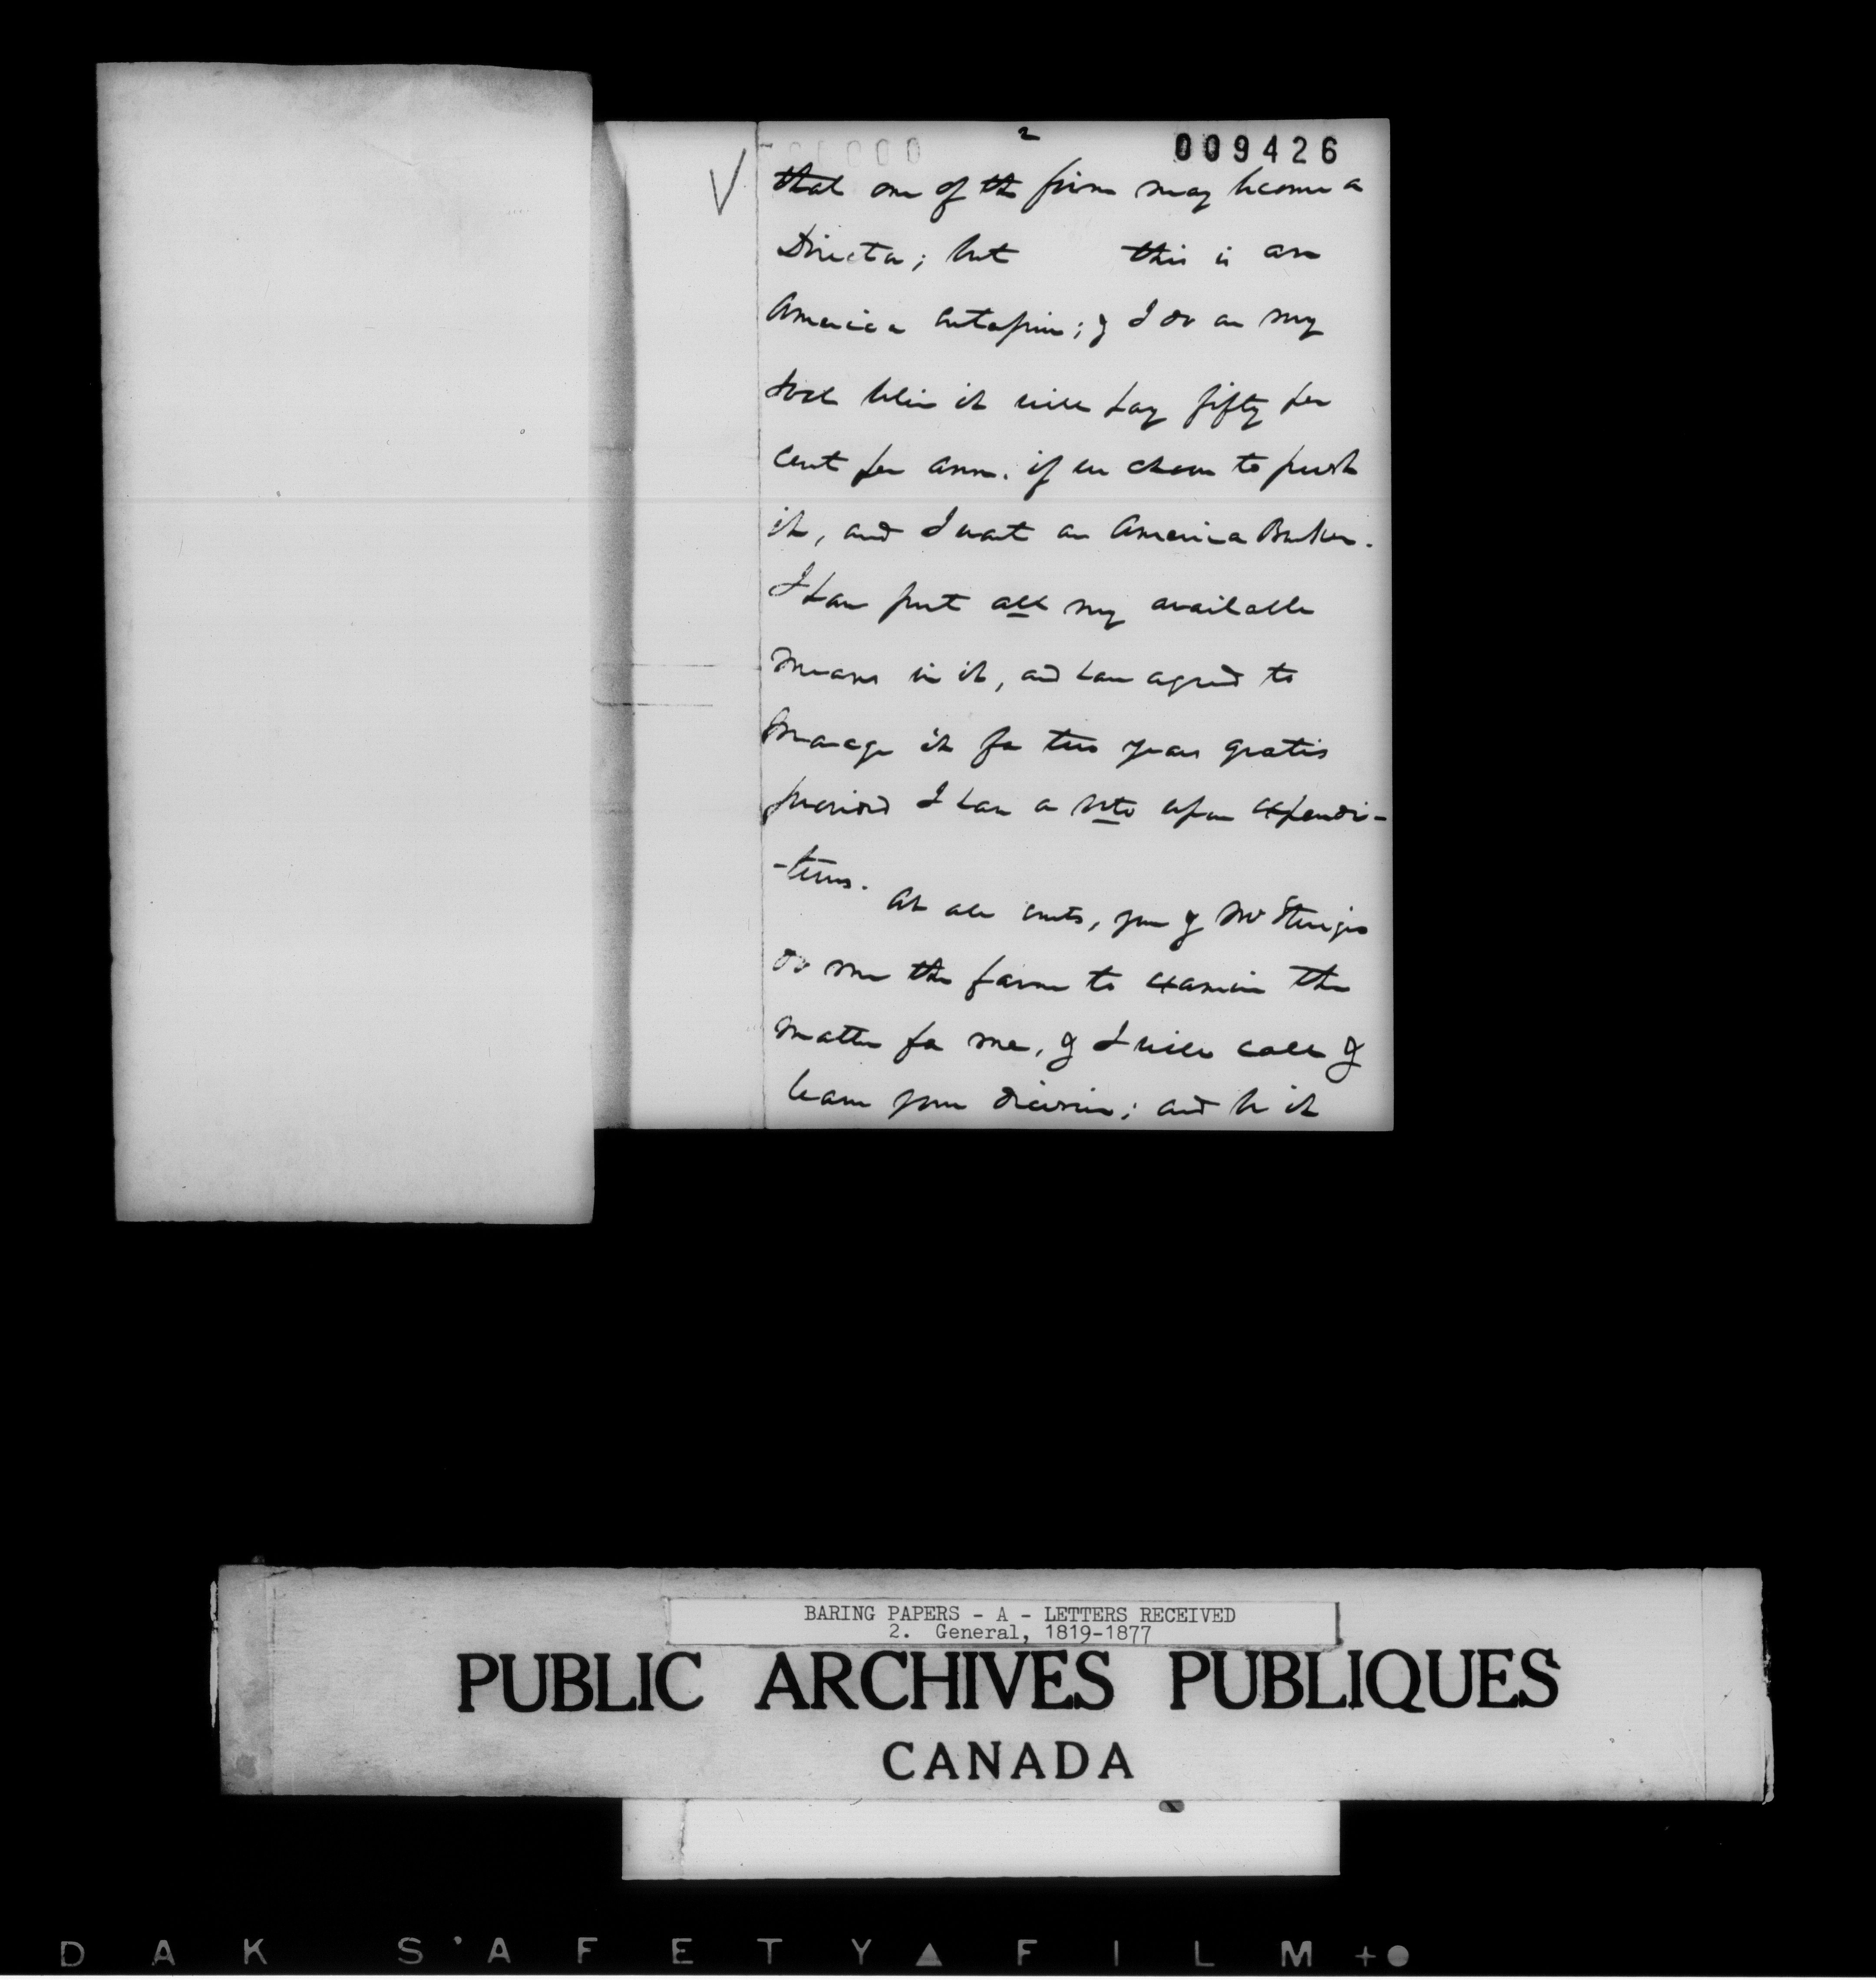 2
009426
that one of the firm may become a
Director; but this is an
American enterprise; & I do on my
soul believe it will pay fifty per
cent per ann. if we choose to push
it, and I want an American Banker.
I have put all my available
means in it, and have agreed to
manage it for two years gratis
provided I have a veto upon expendi-
-tures.
At all events, you & Mr Sturgis
do me the favor to examine the
matter for me, & I will call &
learn your decision; and be it
BARING PAPERS - A - LETTERS RECEIVED
2. General, 1819-1877
PUBLIC ARCHIVES PUBLIQUES
CANADA
DAK S'AFETY FILM